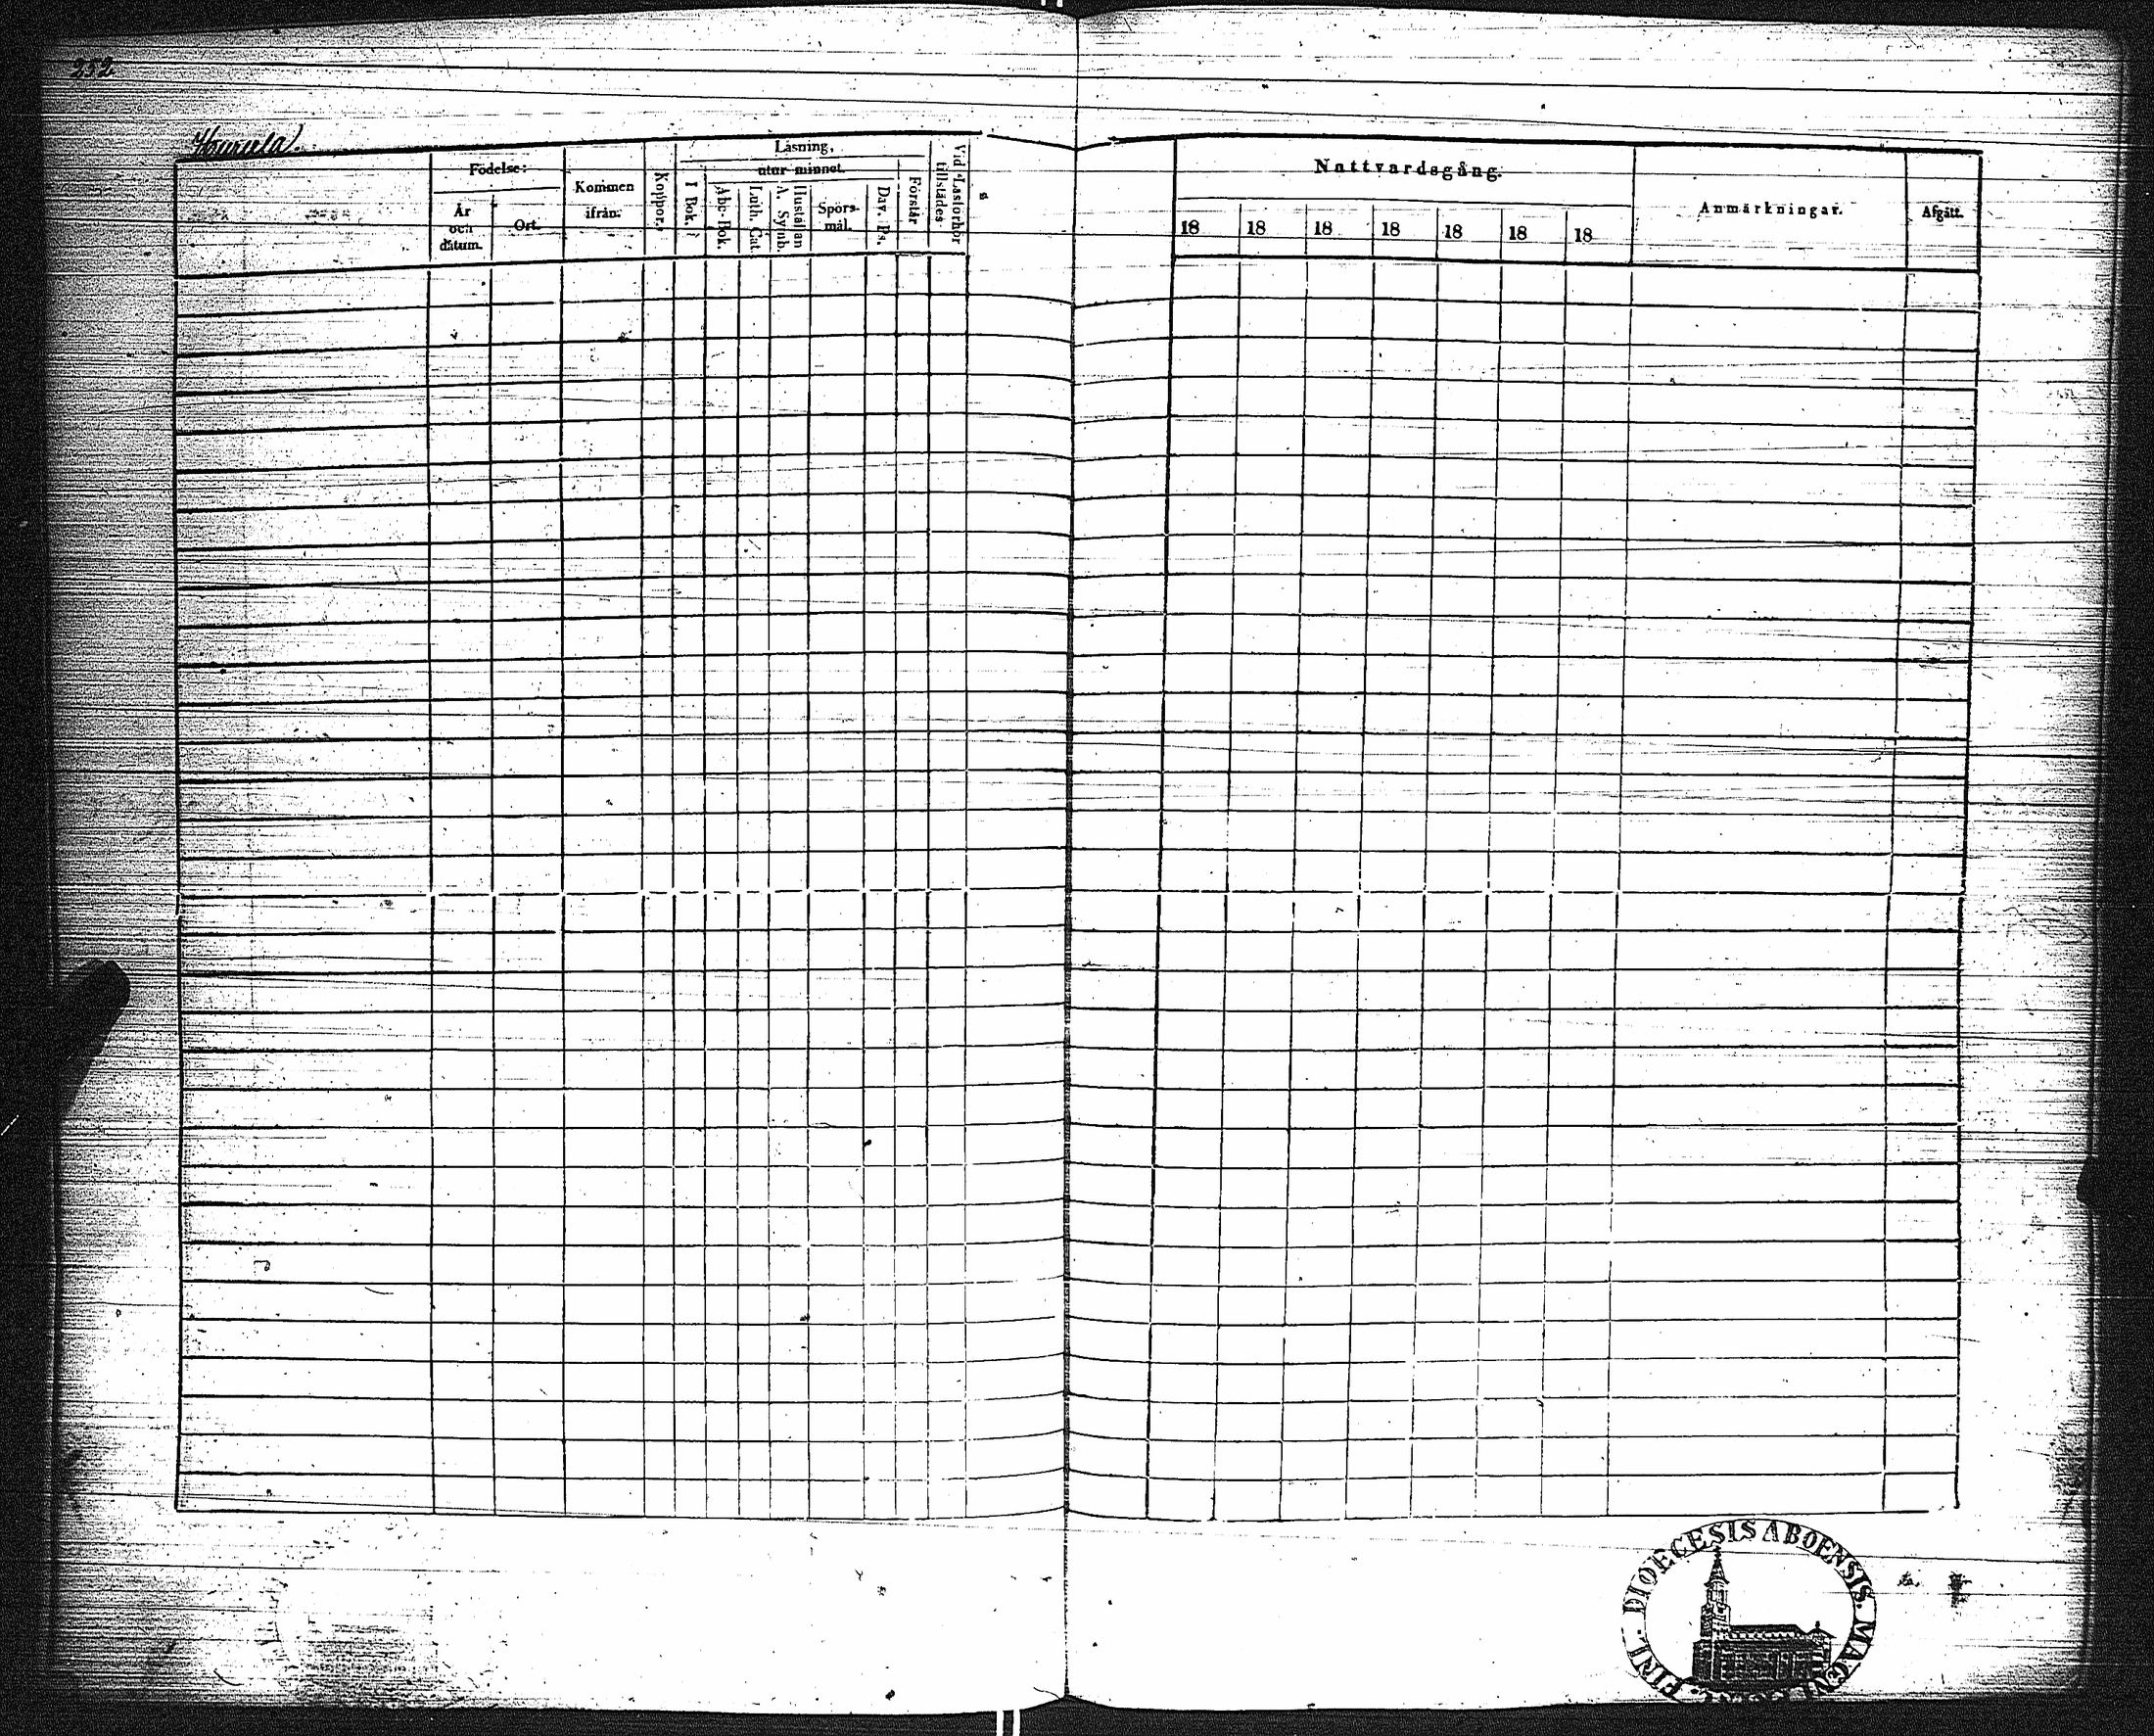 252
Födelse:
År och dátum.
Ort.
Kommen ifrån:
Koppor.
Läsning,
utur minnet.
I Bok.
Abc-Bok.
Luth. Cat.
A. Symb.
Hustaflan
Spörs-mål.
Dav. Ps.
Förstår
Vid Läsförhör tillstädes
Nattvardsgång.
18 18 18 18 18 18 18
Anmärkningar.
Afgått.
DIOECESIS ABOENSIS. MAGNI
FINL.